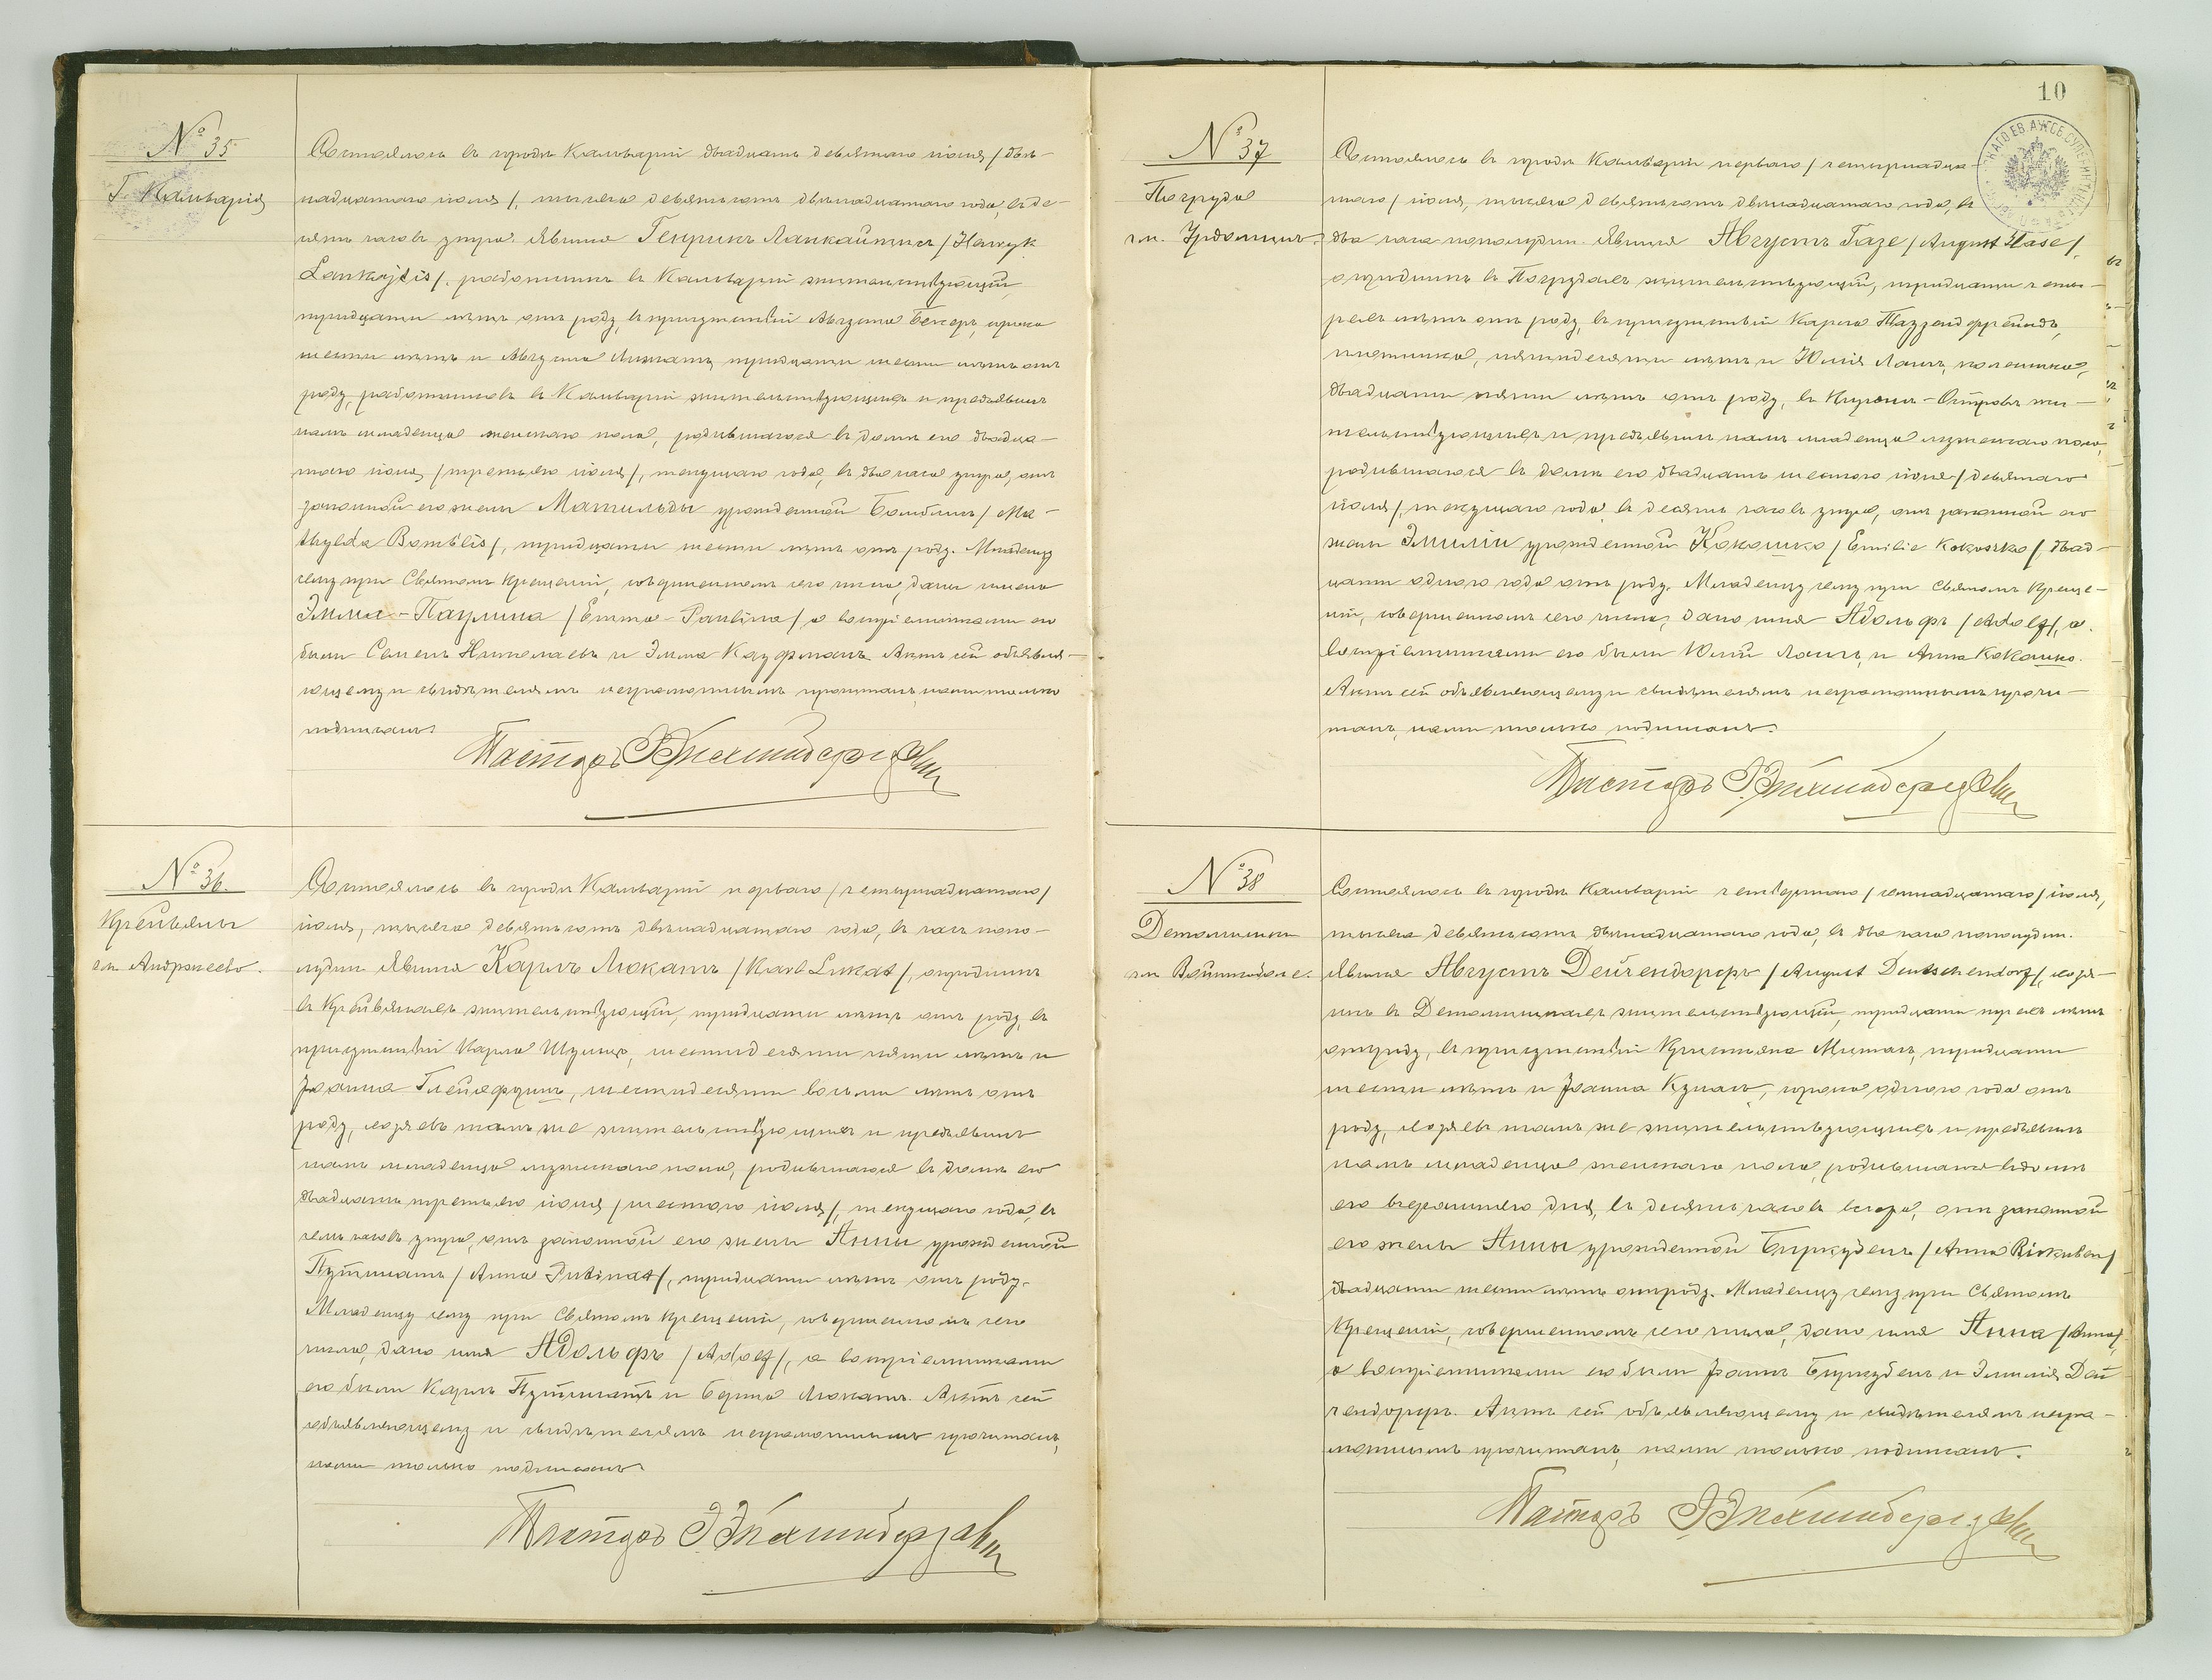 № 35
Г. Кальварія
Состоялось въ городѣ Кальваріи двадцать девятаго іюня /двѣ-
надцатаго іюля/, тысяча девятьсотъ двѣнадцатаго года, въ де-
сять часовъ утра. Явился Генрикъ Ланкайтисъ /Henryk
Lankajtis/, работникъ въ Кальваріи жительствующій,
тридцати лѣтъ отъ роду, въ присутствіи Августа Бекеръ, сорока
шести лѣтъ и Августа тридцати шести лѣтъ отъ
роду, работниковъ въ Кальваріи жительствующихъ и предъявилъ
намъ младенца женскаго пола, родившагося въ домѣ его двадца-
таго іюня /третьяго іюля/, текущаго года, въ два часа утра, отъ
законной его жены Матильды урожденной Бомблисъ /Ma-
thylda Bomblis/, тридцати шести лѣтъ отъ роду. Младенцу
сему при Святомъ Крещеніи, совершенномъ сего числа, даны имена
Эмма-Паулина /Emma-Paulina/ а воспріемниками его
были Семенъ Николаевъ и Эмма Кауфманъ. Актъ сей объявля-
ющему и свидѣтелямъ неграмотнымъ прочитанъ, нами только
подписанъ.
Пасторъ
№ 36.
Крейвяны
гм. Андржеево.
Состоялось въ городѣ Кальваріи перваго /четырнадцатаго/
іюля, тысяча девятьсотъ двѣнадцатаго года, въ часъ попо-
лудни. Явился Карлъ Люкатъ /Karl Lukat/, огродникъ
въ Крейвянахъ жительствующій, тридцати лѣтъ отъ роду, въ
присутствіи Карла Шульцъ, шестидесяти пяти лѣтъ и
Іоанна шестидесяти восьми лѣтъ отъ
роду, хозяевъ тамъ же жительствующихъ и предъявилъ
намъ младенца мужескаго пола, родившагося въ домѣ его
двадцать третьяго іюня /шестого іюля/, текущаго года, въ
семь часовъ утра, отъ законной его жены Анны урожденной
Путинатъ /Anna Putinat/, тридцати лѣтъ отъ роду.
Младенцу сему при Святомъ Крещеніи, совершенномъ сего
числа, дано имя Адольфъ /Adolf/, а воспріемниками
его были Карлъ Путинатъ и Берта Люкатъ. Актъ сей
объявляющему и свидѣтелямъ неграмотнымъ прочитанъ,
нами только подписанъ.
Пасторъ
10
№ 37
Погруда
гм. Урдоминъ.
Состоялось въ городѣ Кальваріи перваго /четырнадца-
таго/ іюля, тысяча девятьсотъ двѣнадцатаго года, въ
два часа пополудни. Явился Августъ Газе /August Hase/,
огродникъ въ Погрудахъ жительствующій, тридцати четы-
рехъ лѣтъ отъ роду, въ присутствіи Карла
плотника, пятидесяти лѣтъ и Юлія Лашъ,
двадцати пяти лѣтъ отъ роду, въ жи-
тельствующихъ и предъявилъ намъ младенца мужескаго пола,
родившагося въ домѣ его двадцать шестого іюня /девятаго
іюля/, текущаго года, въ десять часовъ утра, отъ законной его
жены Эмиліи урожденной Кокошко /Emilie Kokoszko/, двад-
цати одного года отъ роду. Младенцу сему при Святомъ Креще-
ніи, совершенномъ сего числа, дано имя Адольфъ /Adolf/, а
воспріемниками его были Юлій Лашъ и Анна Кокошко.
Актъ сей объявляющему и свидѣтелямъ неграмотнымъ прочи-
танъ, нами только подписанъ.
Пасторъ
№ 38
гм.
Состоялось въ городѣ Кальваріи четвертаго /семнадцатаго/ іюля,
тысяча девятьсотъ двѣнадцатаго года, въ два часа пополудни.
Явился Августъ Дейчендорфъ /August Deutschendorf/, хозя-
инъ въ жительствующій, тридцати трехъ лѣтъ
отъ роду, въ присутствіи Кристіана тридцати
шести лѣтъ и Іоанна сорока одного года отъ
роду, хозяевъ тамъ же жительствующихъ и предъявилъ
намъ младенца женскаго пола, родившагося въ домѣ
его вчерашняго дня, въ десять часовъ вечера, отъ законной
его жены Анны урожденной Биркубенъ /Anna Birkuben/
двадцати шести лѣтъ отъ роду. Младенцу сему при Святомъ
Крещеніи, совершенномъ сего числа, дано имя Анна /Anna/,
а воспріемниками его были Іоаннъ Биркубенъ и Эмилія Дей-
чендорфъ. Актъ сей объявляющему и свидѣтелямъ негра-
мотнымъ прочитанъ, нами только подписанъ.
Пасторъ